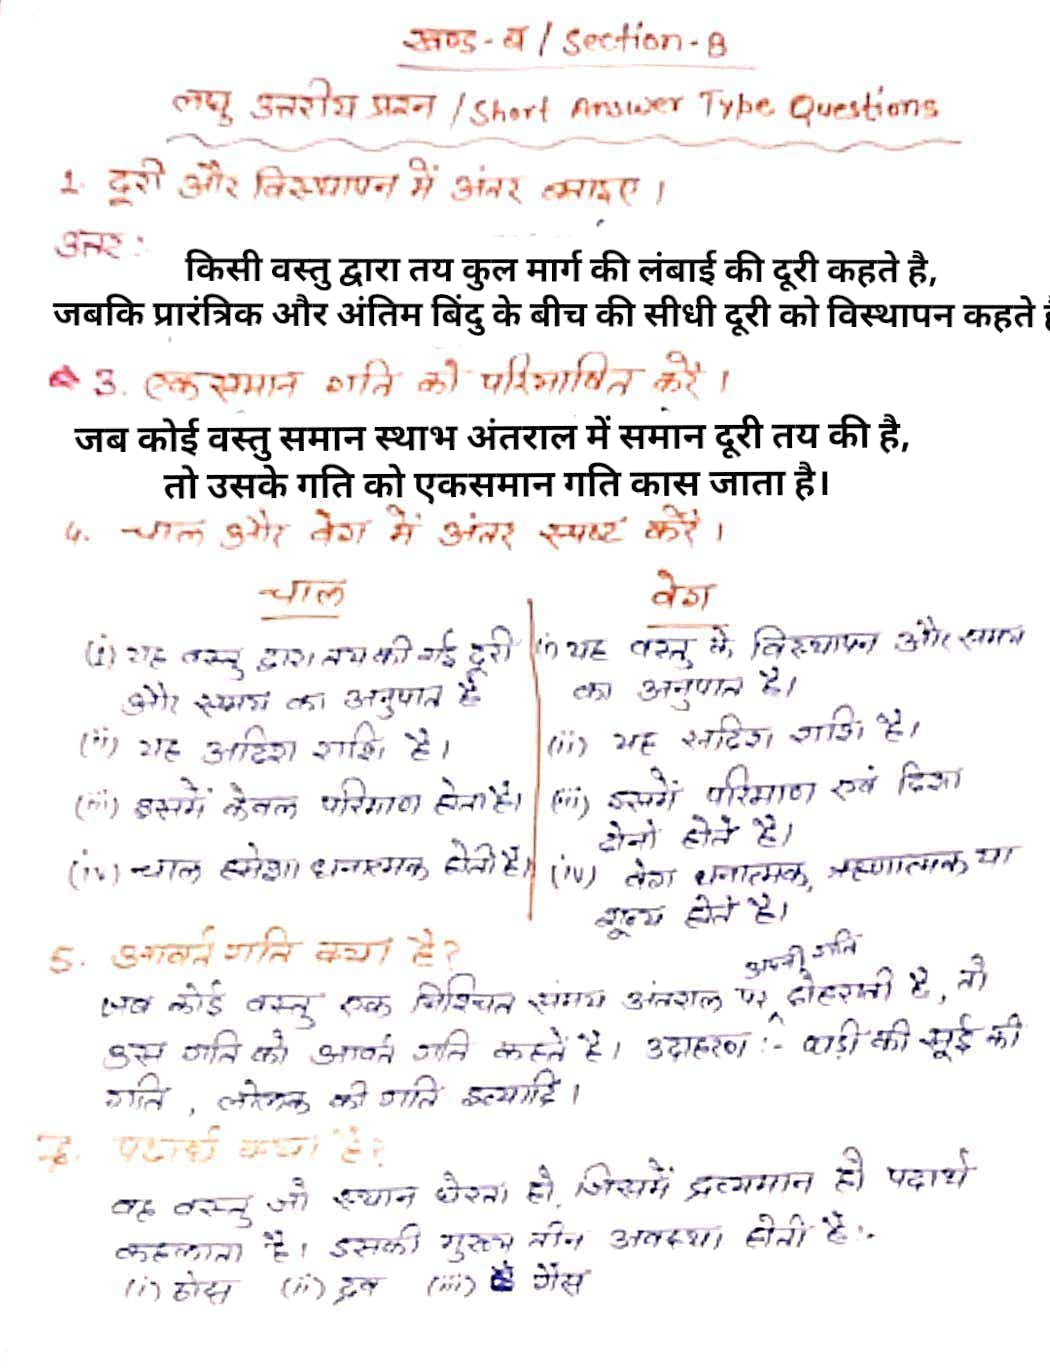 खण्ड - ब / Section - B
लघु उत्तरीय प्रश्न / Short Answer Type Questions
1. दूरी और विस्थापन में अंतर बताइए।
उत्तर :
किसी वस्तु द्वारा तय कुल मार्ग की लंबाई की दूरी कहते है,
जबकि प्रारंत्रिक और अंतिम बिंदु के बीच की सीधी दूरी को विस्थापन कहते है
3. एक समान गति को परिभाषित करें।
जब कोई वस्तु समान स्थाभ अंतराल में समान दूरी तय की है,
तो उसके गति को एकसमान गति कास जाता है।
4. चाल और वेग में अंतर स्पष्ट करें।
चाल
(i) यह वस्तु द्वारा तय की गई दूरी
और समय का अनुपात है
(ii) यह अदिश राशि है।
(iii) इसमें केवल परिमाण होता है।
(iv) चाल हमेशा धनात्मक होती है।
वेग
(i) यह वस्तु के विस्थापन और समय
का अनुपात है।
(ii) यह सदिश राशि है।
(iii) इसमें परिमाण एवं दिशा
दोनो होते है।
(iv) वेग धनात्मक, ऋणात्मक या
शून्य होते है।
5. आवर्त गति क्या है?
जब कोई वस्तु एक निश्चित समय अंतराल पर अपनी गति दोहराती है, तो
उस गति को आवर्त गति कहते है। उदाहरण :- घड़ी की सूई की
गति, लोलक की गति इत्यादि।
पदार्थ क्या है?
वह वस्तु जो स्थान घेरता हो, जिसमें द्रव्यमान हो पदार्थ
कहलाता है। इसकी मुख्य तीन अवस्था होती है :-
(i) ठोस (ii) द्रव (iii) गैस